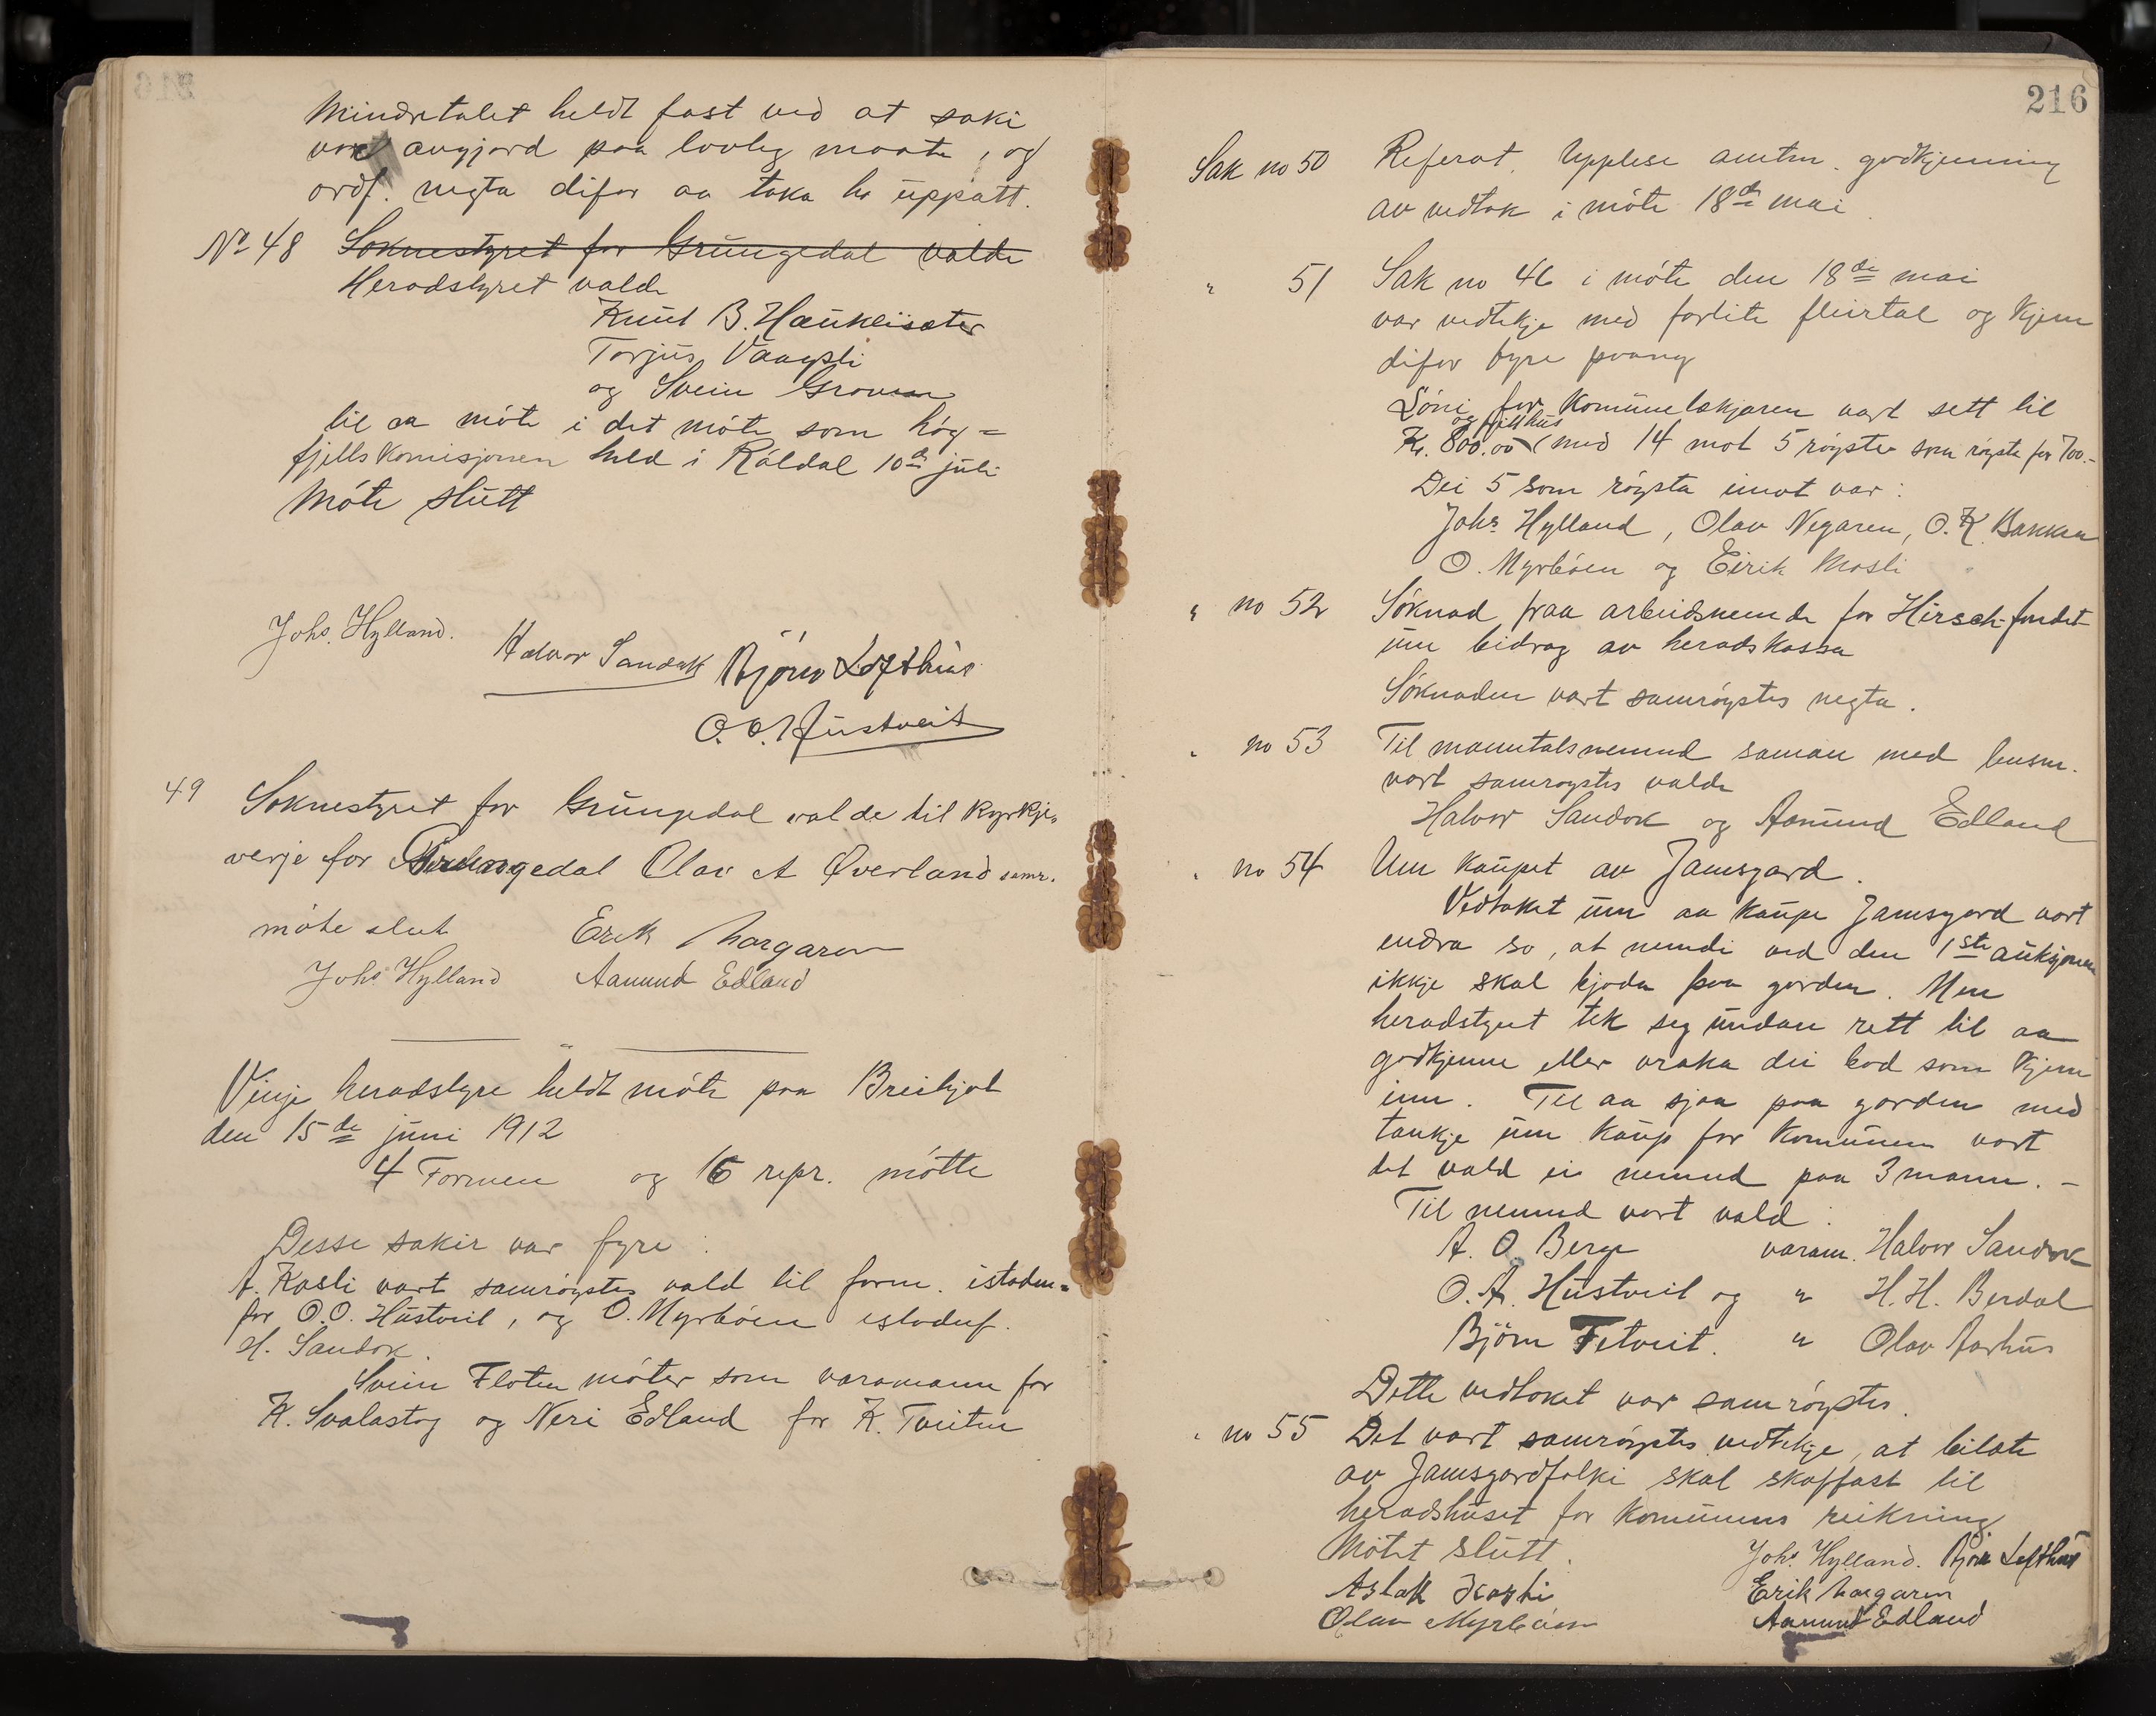 Mindretalet heldt fast ved at saki
var avgjord paa lovleg maate, og
ordf. negta difor aa taka ho uppatt.
No 48 Soknestyret for Grungedal valde
Heradstyret valde
Knut B. Haukelisæter
Torjus Vaagsli
og Svein Groven
til aa møte i det møte som høg=
fjellskomisjonen held i Røldal 10de juli
Møte slutt
Johs. Hylland. Halvor Sandok Bjørn Lofthus
O. O. Hustveit
49 Soknestyret for Grungedal valde til kyrkje-
verje for Grungedal Olav A Øverland samr.
møte slut Erik Nargaren
Johs Hylland Aamund Edland
Vinje heradstyre heldt møte paa Breihjal
den 15de juni 1912
4 Formen og 16 repr. møtte
Desse sakir var fyre:
A. Kosli vart samrøystes vald til form. istaden-
for O.O. Hustveit, og O. Myrbøen istadenf.
H. Sandok.
Svein Floten møter som varamann for
K. Svalastog og Neri Edland for K. Tveiten
216
Sak no 50 Referat. Upplese amtm. godkjenning
av vedtak i møte 18de mai.
" 51 Sak no 46 i møte den 18de mai
var vedtekje med forlite fleirtal og kjem
difor fyre paany
Løni for komunelækjaren vart sett til
og fritt hus
Kr. 800.00 (med 14 mot 5 røyster som røysta for 700.-
Dei 5 som røysta imot var:
Johs Hylland, Olav Negaren, O. K. Bakken
O. Myrbøen og Eirik Mosli
" no 52 Søknad fraa arbeidsnemnde for Hirsch-fondet
um bidrag av heradskassa
Søknaden vart samrøystes negta.
" no 53 Til manntalsnemnd saman med lensm.
vart samrøystes valde
Halvor Sandok og Aamund Edland
" no 54 Um kaupet av Jamsgard.
Vedtaket um aa kaupe Jamsgard vart
endra so, at nemndi ved den 1ste auksjonen
ikkje skal bjoda paa garden. Men
heradstyret tek seg undan rett til aa
godkjenne eller vraka dei bod som kjem
inn. Til aa sjaa paa garden med
tankje um kaup for komunen vart
det vald ei nemnd paa 3 mann. -
Til nemnd vart vald:
A. O. Berge varam. Halvor Sandok
O. A. Hustveit og " H. H. Berdal
Bjørn Fetveit. " Olav Aarhus
Dette vedtaket var samrøystes.
" no 55 Det vart samrøystes vedtekje, at bilæte
av Jamsgardfolki skal skaffast til
heradshuset for komunens reikning
Møtet slutt.
Johs Hylland. Bjørn Lofthus
Aslak Kosli Erik Nargaren
Olav Myrbøen Aamund Edland